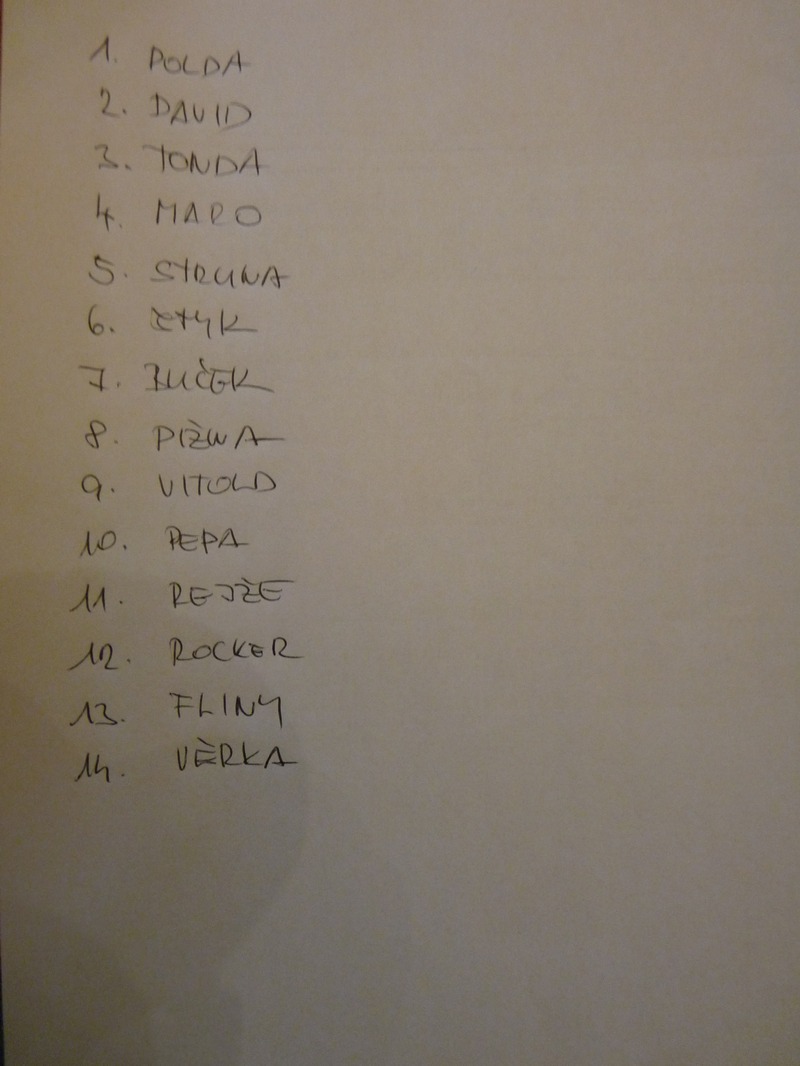 1. POLDA
2. DAVID
3. TONDA
4. MARO
5. STRUNA
6. ŠTYK
7. BUČEK
8. PIŽWA
9. VITOLD
10. PEPA
11. REJŽE
12. ROCKER
13. FLINY
14. VĚRKA